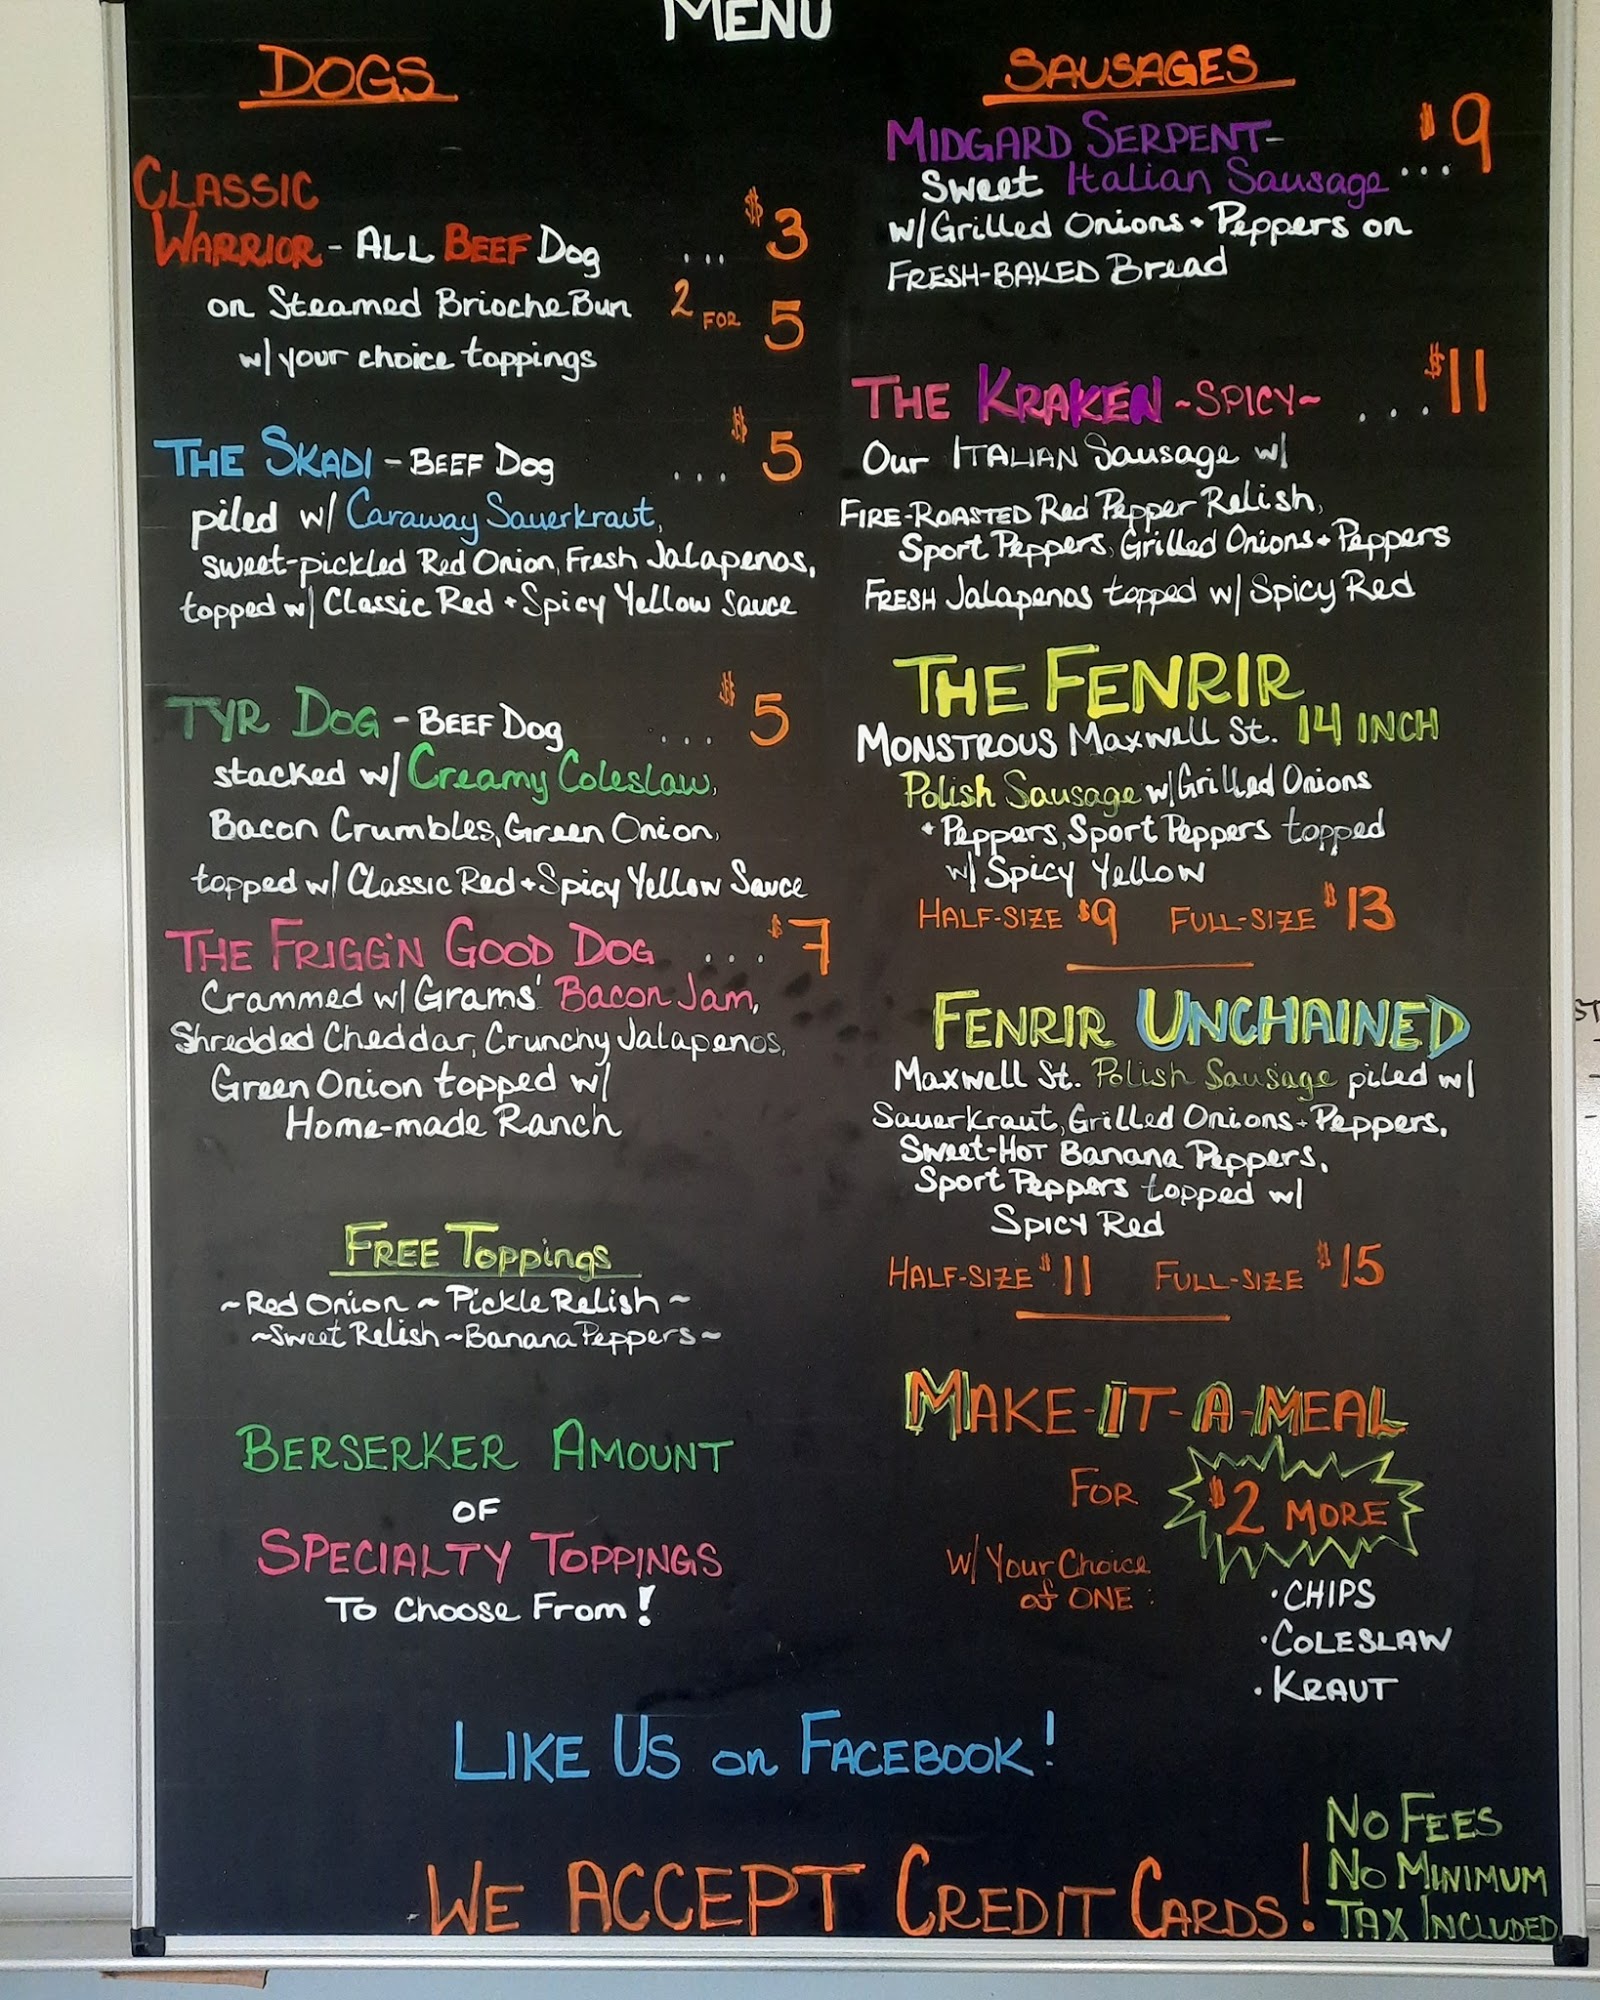 MENU
DOGS
CLASSIC
WARRIOR - ALL BEEF Dog ... $3
on Steamed Brioche Bun 2 FOR 5
w/ your choice toppings
THE SKADI - BEEF Dog ... $5
piled w/ Caraway Sauerkraut,
sweet-pickled Red Onion, Fresh Jalapenos,
topped w/ Classic Red + Spicy Yellow Sauce
TYR DOG - BEEF Dog ... $5
stacked w/ Creamy Coleslaw,
Bacon Crumbles, Green Onion,
topped w/ Classic Red + Spicy Yellow Sauce
THE FRIGG'N GOOD DOG ... $7
Crammed w/ Grams' Bacon Jam,
Shredded Cheddar, Crunchy Jalapenos,
Green Onion topped w/
Home-made Ranch
FREE Toppings
~Red Onion ~ Pickle Relish~
~Sweet Relish ~ Banana Peppers~
BERSERKER AMOUNT
OF
SPECIALTY TOPPINGS
To Choose From!
SAUSAGES
MIDGARD SERPENT-
Sweet Italian Sausage ... $9
w/ Grilled Onions + Peppers on
FRESH-BAKED Bread
THE KRAKEN ~SPICY~ ... $11
Our ITALIAN Sausage w/
FIRE-ROASTED Red Pepper Relish,
Sport Peppers, Grilled Onions + Peppers
FRESH Jalapenos topped w/ Spicy Red
THE FENRIR
MONSTROUS Maxwell St. 14 INCH
Polish Sausage w/ Grilled Onions
+ Peppers, Sport Peppers topped
w/ Spicy Yellow
HALF-SIZE $9 FULL-SIZE $13
FENRIR UNCHAINED
Maxwell St. Polish Sausage piled w/
Sauerkraut, Grilled Onions + Peppers,
Sweet-Hot Banana Peppers,
Sport Peppers topped w/
Spicy Red
HALF-SIZE $11 FULL-SIZE $15
MAKE-IT-A-MEAL
FOR $2 MORE
w/ Your Choice
of ONE:
· CHIPS
· COLESLAW
· KRAUT
LIKE US on FACEBOOK!
WE ACCEPT CREDIT CARDS!
NO FEES
NO MINIMUM
TAX INCLUDED